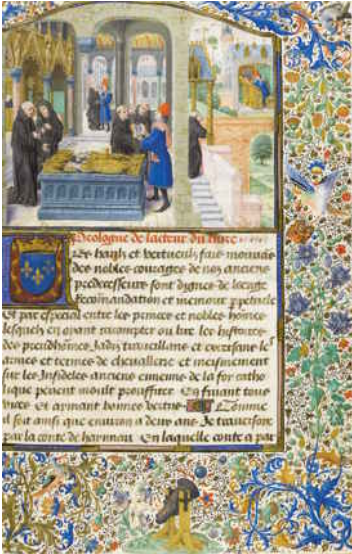 Prologue de lacteur du liure
Les haulx et vertueulx fais mouuans
des nobles courages de nos anciens
predecesseurs sont dignes de louenge
Recommandation et memoire perpetuele
Et par especial entre les princes et nobles hommes
lesquels en oyant racompter ou lire les histoires
des preudhommes Jadis trauaillans et exercitans les
armes et termes de cheuallerie et meismement
sur les Infideles anciens ennemis de la foy catho
lique peuent moult prouffiter En suiuant tous
et aymant bonnes vertus Comme
il soit ainsi que enuiron a deux ans Je trauersoie
par la conte de haynnau En laquelle conte a par